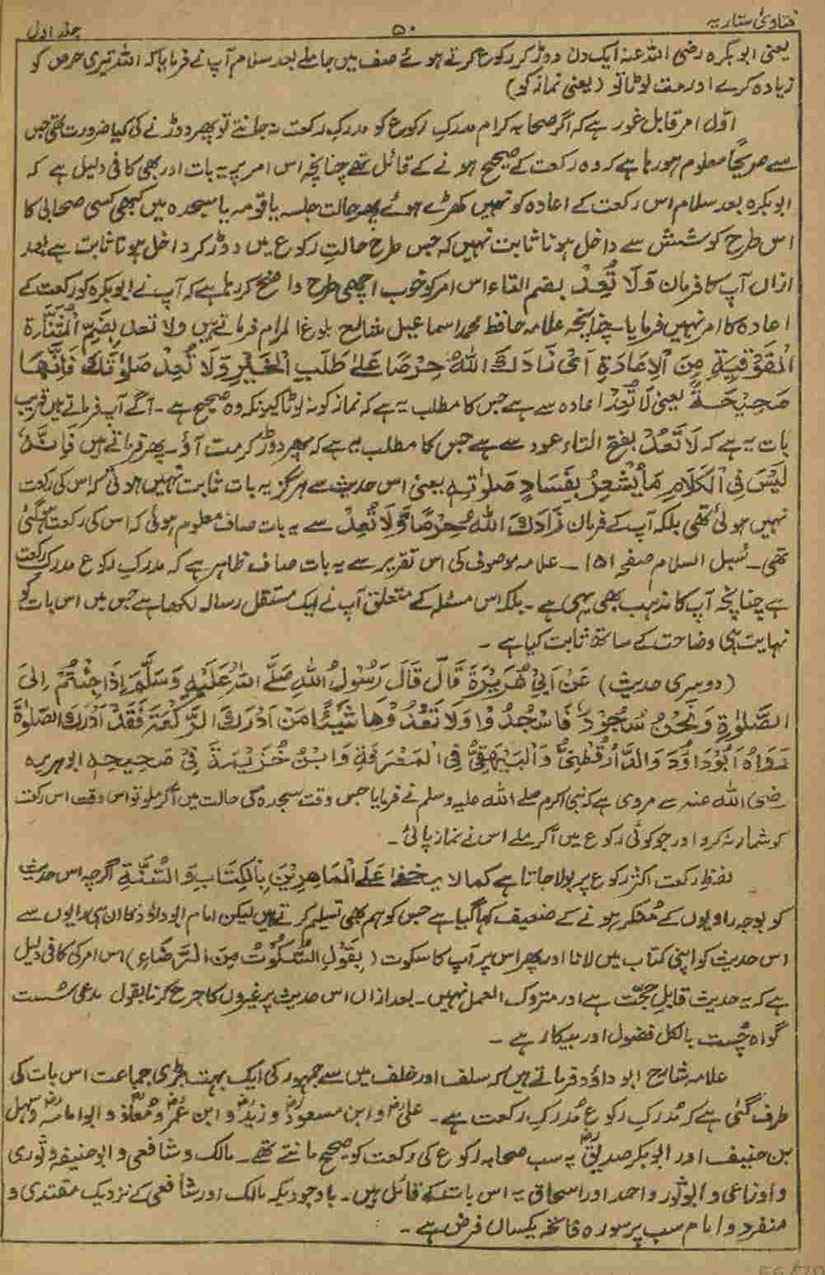 فتاویٰ ستاریہ ۵۰ جلد اول
یعنی ابوبکرہ رضی اللہ عنہ ایک دن دوڑ کر رکوع کرتے ہوئے صف میں جا ملے بعد سلام آپ نے فرمایا کہ اللہ تیری حرص کو
زیادہ کرے اور مت لوٹا تو (یعنی نماز کو)
اول امر قابل غور ہے کہ اگر صحابہ کرام مدرکِ رکوع کو مدرکِ رکعت نہ جانتے تو پھر دوڑنے کی کیا ضرورت تھی جس
سے صریحًا معلوم ہو رہا ہے کہ وہ رکعت کے صحیح ہونے کے قائل تھے چنانچہ اس امر پر یہ بات اور بھی کافی دلیل ہے کہ
ابوبکرہ بعد سلام اس رکعت کے اعادہ کو نہیں کھڑے ہوئے پھر حالت جلسہ یا قومہ یا سجدہ میں کبھی کسی صحابی کا
اس طرح کوشش سے داخل ہونا ثابت نہیں کہ جس طرح حالتِ رکوع میں دوڑ کر داخل ہونا ثابت ہے بعد
ازاں آپ کا فرمان وَلَا تُعِدْ بضم التاء اس امر کو خوب اچھی طرح واضح کر رہا ہے کہ آپ نے ابوبکرہ کو رکعت کے
اعادہ کا امر نہیں فرمایا۔ چنانچہ علامہ حافظ محمد اسماعیل شارح بلوغ المرام فرماتے ہیں ولا تعد بِضَمِّ الْمُثَنَّاةِ
الْفَوْقِيَةِ مِنَ الْاِعَادَةِ اَیْ زَادَكَ اللّٰهُ حِرْصًا عَلٰی طَلَبِ الْخَيْرِ وَلَا تُعِدْ صَلٰوتَكَ فَاِنَّهَا
صَحِيْحَةٌ یعنی لَا تُعِدْ اعادہ سے ہے جس کا مطلب یہ ہے کہ نماز کو نہ لوٹا کیونکہ وہ صحیح ہے۔ آگے آپ فرماتے ہیں قریب
بات یہ ہے کہ لَا تَعُدْ بفتح التاء عود سے ہے جس کا مطلب یہ ہے کہ پھر دوڑ کر مت آؤ۔ پھر فرماتے ہیں فَاِنَّهٗ
لَيْسَ فِی الْكَلَامِ مَا يُشْعِرُ بِفَسَادِ صَلٰوتِهٖ یعنی اس حدیث سے ہرگز یہ بات ثابت نہیں ہوتی کہ اس کی رکعت
نہیں ہوئی تھی بلکہ آپ کے فرمان زَادَكَ اللّٰهُ حِرْصًا وَّلَا تُعِدْ سے یہ بات صاف معلوم ہوئی کہ اس کی رکعت ہو گئی
تھی۔ سُبل السلام صفحہ ۱۵۱۔ علامہ موصوف کی اس تقریر سے یہ بات صاف ظاہر ہے کہ مدرکِ رکوع مدرکِ رکعت
ہے چنانچہ آپ کا مذہب بھی یہی ہے۔ بلکہ اس مسئلہ کے متعلق آپ نے ایک مستقل رسالہ لکھا ہے جس میں اس بات کو
نہایت ہی وضاحت کے ساتھ ثابت کیا ہے۔
(دوسری حدیث) عَنْ اَبِیْ هُرَيْرَةَ قَالَ قَالَ رَسُوْلُ اللّٰهِ صَلَّی اللّٰهُ عَلَيْهِ وَسَلَّمَ اِذَا جِئْتُمْ اِلَی
الصَّلٰوةِ وَنَحْنُ سُجُوْدٌ فَاسْجُدُوْا وَلَا تَعُدُّوْهَا شَيْئًا مَنْ اَدْرَكَ الرَّكْعَةَ فَقَدْ اَدْرَكَ الصَّلٰوةَ
رَوَاهُ اَبُوْدَاؤُدَ وَالدَّارُقُطْنِیُّ وَالْبَيْهَقِیُّ فِی الْمَعْرِفَةِ وَابْنُ خُزَيْمَةَ فِیْ صَحِيْحِهٖ ابوہریرہ
رضی اللہ عنہ سے مروی ہے کہ نبی اکرم صلے اللہ علیہ وسلم نے فرمایا جس وقت سجدہ کی حالت میں آکر ملو تو اس وقت اس رکعت
کو شمار نہ کرو اور جو کوئی رکوع میں آکر ملے اس نے نماز پالی۔
لفظ رکعت اکثر رکوع پر بولا جاتا ہے كمالا يخفٰی علی الماهرين بالكتاب والسنة اگرچہ اس حدیث
کو بوجہ راویوں کے منکر ہونے کے ضعیف کہا گیا ہے جس کو ہم بھی تسلیم کرتے ہیں لیکن امام ابوداؤد کا ان ہی راویوں سے
اس حدیث کو اپنی کتاب میں لانا اور پھر اس پر آپ کا سکوت (بقول السُّكُوْتُ مِنَ الرَّضَاءِ) اس امر کی کافی دلیل
ہے کہ یہ حدیث قابل حجت ہے اور متروک العمل نہیں۔ بعد ازاں اس حدیث پر غیروں کا جرح کرنا بقول مدعی سُست
گواہ چُست بالکل فضول اور بیکار ہے۔
علامہ شارح ابوداؤد فرماتے ہیں کہ سلف اور خلف میں سے جمہور کی ایک بہت بڑی جماعت اس بات کی
طرف گئی ہے کہ مُدرکِ رکوع مُدرکِ رکعت ہے۔ علیؓ و ابن مسعودؓ و زیدؓ و ابن عمرؓ و معاذؓ و ابوامامہؓ و سہل
بن حنیف اور ابوبکر صدیقؓ یہ سب صحابہ رکوع کی رکعت کو صحیح مانتے تھے۔ مالک و شافعی و ابوحنیفہ و ثوری
و اوزاعی و ابوثور و احمد اور اسحاق یہ اس بات کے قائل ہیں۔ باوجودیکہ مالک اور شافعی کے نزدیک مقتدی و
منفرد و امام سب پر سورہ فاتحہ یکساں فرض ہے۔